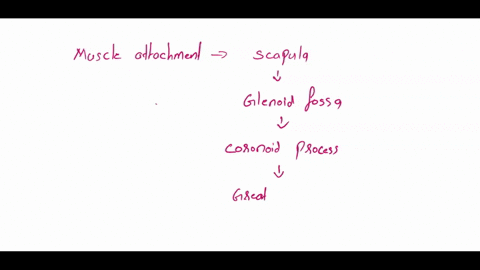 Muscle attachment → scapula
↓
Glenoid fossa
↓
coronoid process
↓
Great